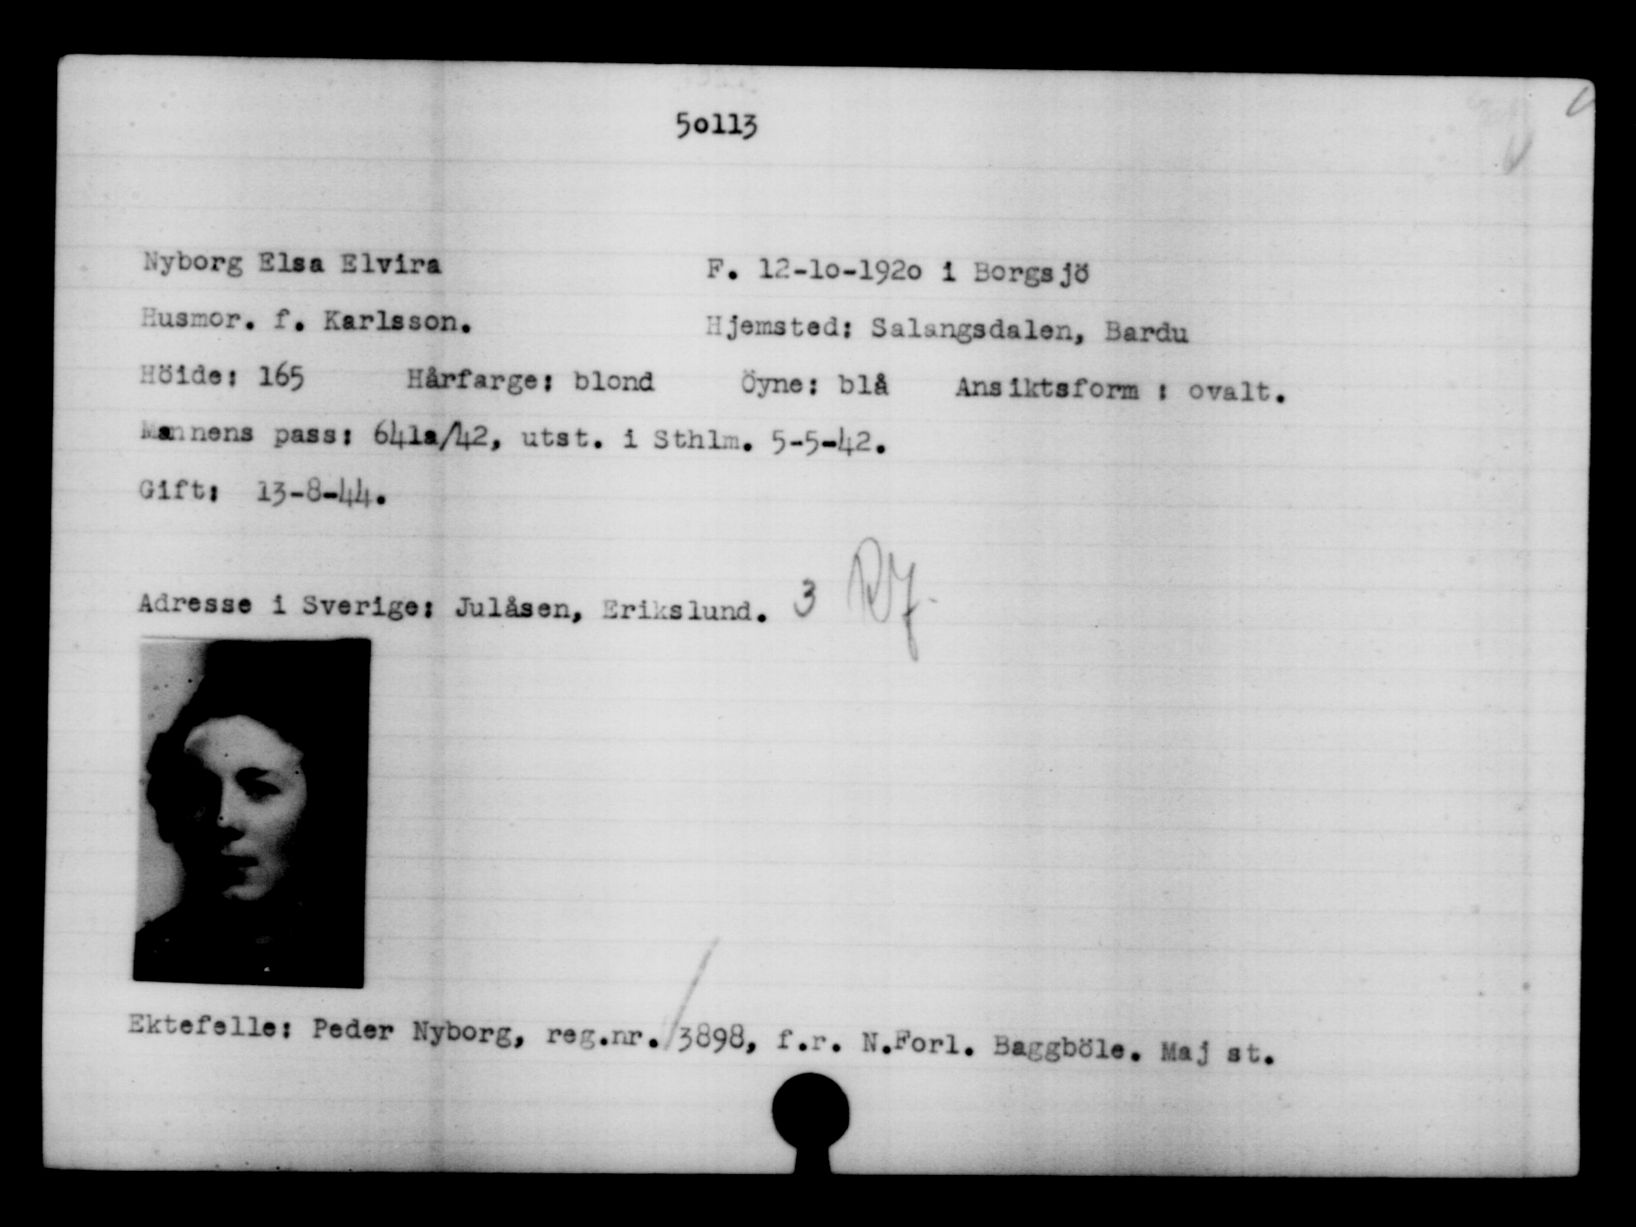 5o113
Nyborg Elsa Elvira F. 12-1o-192o i Borgsjö
Husmor. f. Karlsson. Hjemsted: Salangsdalen, Bardu
Höide: 165 Hårfarge: blond Öyne: blå Ansiktsform : ovalt.
Mannens pass: 641a/42, utst. i Sthlm. 5-5-42.
Gift: 13-8-44.
Adresse i Sverige: Julåsen, Erikslund. 3
Ektefelle: Peder Nyborg, reg.nr. 3898, f.r. N.Forl. Baggböle. Maj st.